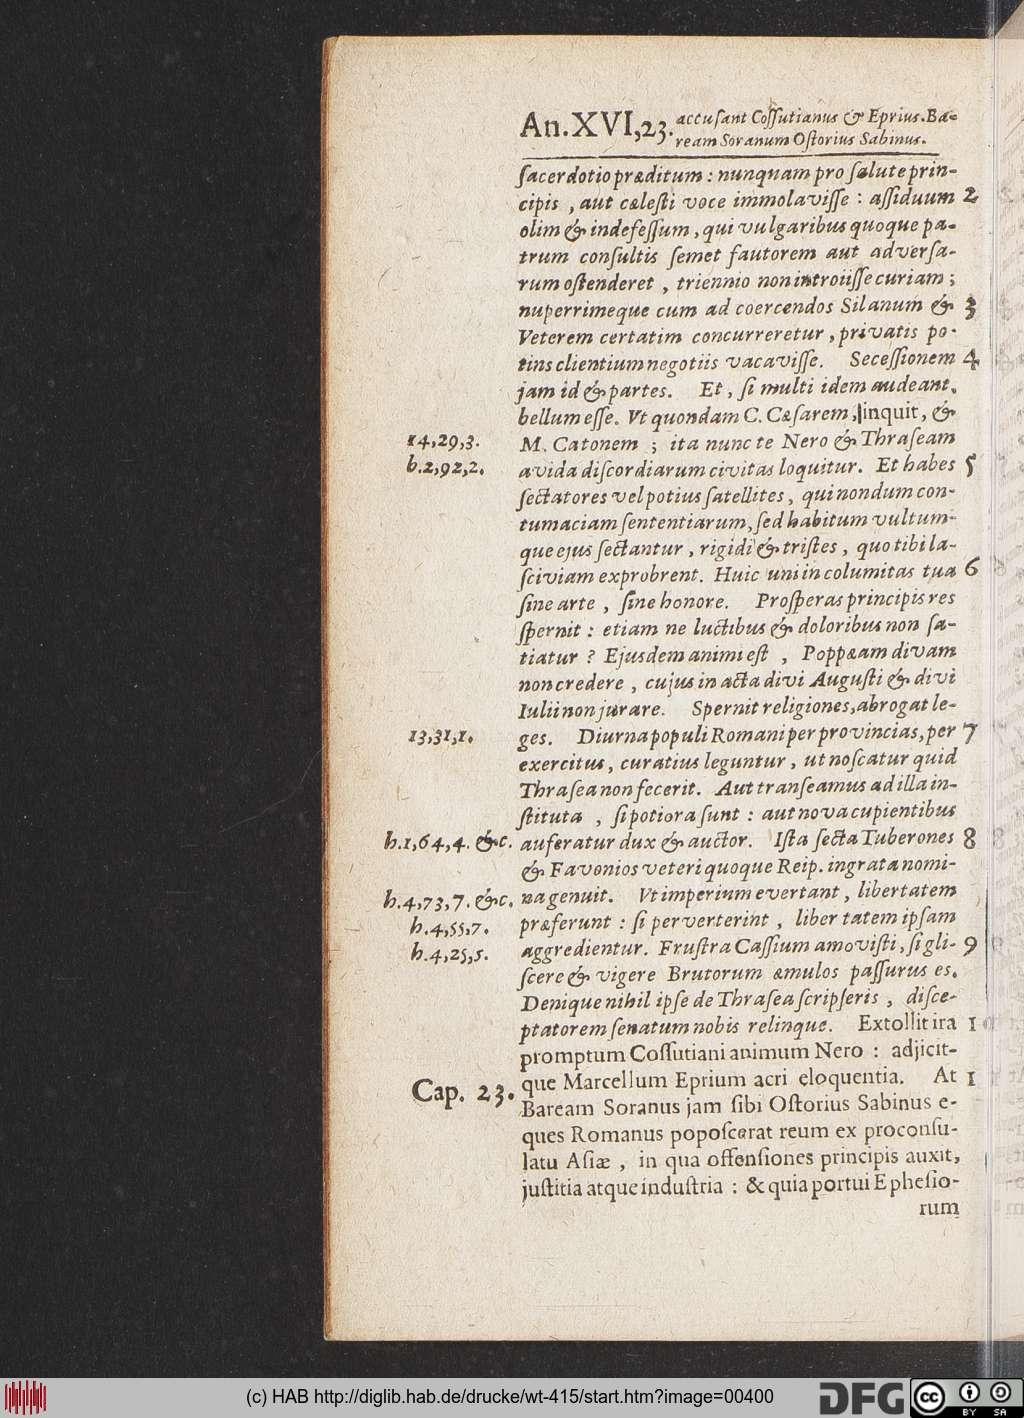 An.XVI,23. accusant Cossutianus & Eprius. Ba-
ream Soranum Ostorius Sabinus.
sacerdotio præditum : nunquam pro salute prin-
cipis , aut cælesti voce immolavisse : assiduum 2
olim & indefessum, qui vulgaribus quoque pa-
trum consultis semet fautorem aut adversa-
rum ostenderet , triennio non introiisse curiam ;
nuperrimeque cum ad coercendos Silanum & 3
Veterem certatim concurreretur, privatis po-
tins clientium negotiis vacavisse. Secessionem 4
jam id & partes. Et, si multi idem audeant,
bellum esse. Vt quondam C. Cæsarem, inquit, &
14,29,3. M. Catonem ; ita nunc te Nero & Thraseam
h.2,92,2. avida discordiarum civitas loquitur. Et habes 5
sectatores vel potius satellites, qui nondum con-
tumaciam sententiarum, sed habitum vultum-
que ejus sectantur, rigidi & tristes, quo tibi la-
sciviam exprobrent. Huic uni incolumitas tua 6
sine arte , sine honore. Prosperas principis res
spernit : etiam ne luctibus & doloribus non sa-
tiatur ? Ejusdem animi est , Poppæam divam
non credere , cujus in acta divi Augusti & divi
Iulii non jurare. Spernit religiones, abrogat le-
13,31,1. ges. Diurna populi Romani per provincias, per 7
exercitus, curatius leguntur , ut noscatur quid
Thrasea non fecerit. Aut transeamus ad illa in-
stituta , si potiora sunt : aut nova cupientibus
h.1,64,4. &c. auferatur dux & auctor. Ista secta Tuberones 8
& Favonios veteri quoque Reip. ingrata nomi-
h.4,73,7. &c. na genuit. Vt imperium evertant, libertatem
h.4,55,7. præferunt : si perverterint , libertatem ipsam
h.4,25,5. aggredientur. Frustra Cassium amovisti, si gli- 9
scere & vigere Brutorum æmulos passurus es.
Denique nihil ipse de Thrasea scripseris , disce-
ptatorem senatum nobis relinque. Extollit ira 1
promptum Cossutiani animum Nero : adjicit-
Cap. 23. que Marcellum Eprium acri eloquentia. At 1
Baream Soranus jam sibi Ostorius Sabinus e-
ques Romanus poposcerat reum ex proconsu-
latu Asiæ , in qua offensiones principis auxit,
justitia atque industria : & quia portui Ephesio-
rum
(c) HAB http://diglib.hab.de/drucke/wt-415/start.htm?image=00400
DFG
cc BY SA